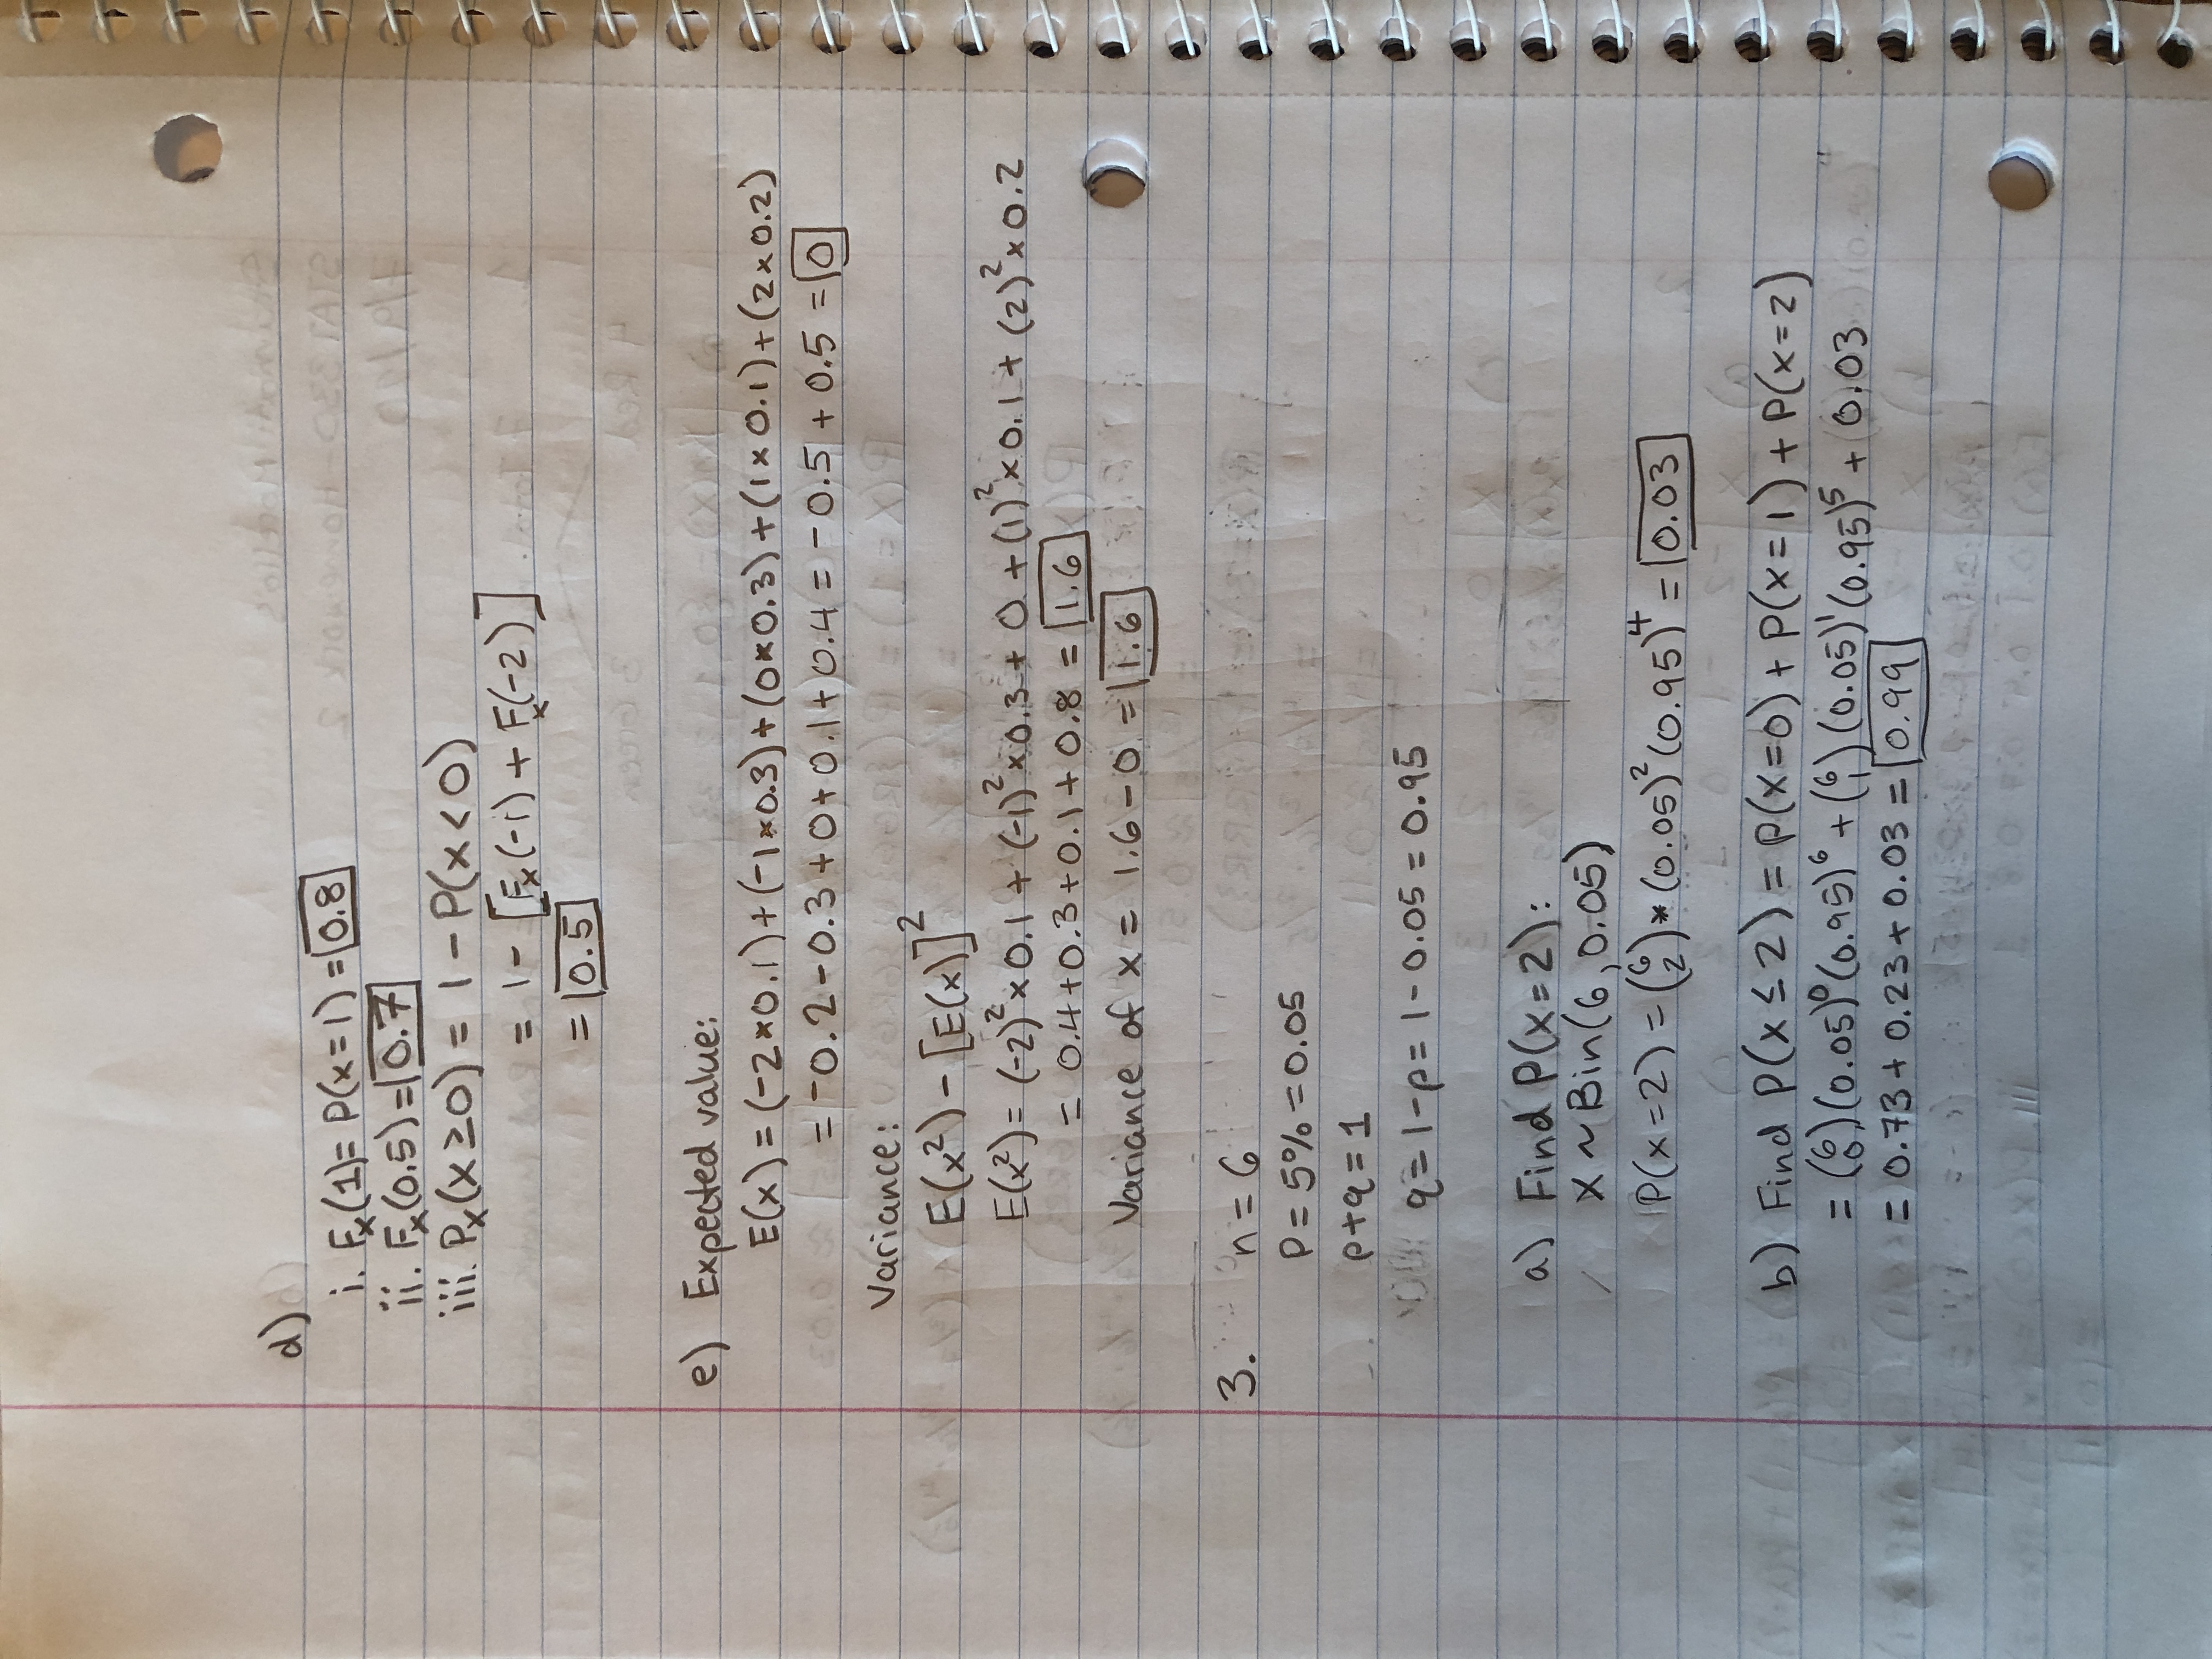 d)
i. Fₓ(1) = P(x=1) = 0.8
ii. Fₓ(0.5) = 0.7
iii. Pₓ(x≥0) = 1 - P(x<0)
= 1 - [Fₓ(-1) + Fₓ(-2)]
= 0.5
e) Expected value:
E(x) = (-2*0.1)+(-1*0.3)+(0*0.3)+(1×0.1)+(2×0.2)
= -0.2-0.3+0+0.1+0.4 = -0.5+0.5 = 0
Variance:
E(x²) - [E(x)]²
E(x²) = (-2)²×0.1 + (-1)²×0.3 + 0 + (1)²×0.1 + (2)²×0.2
= 0.4+0.3+0.1+0.8 = 1.6
Variance of x = 1.6-0 = 1.6
3. n = 6
P = 5% = 0.05
p+q = 1
q = 1-p = 1-0.05 = 0.95
a) Find P(x=2):
X ~ Bin(6, 0.05)
P(x=2) = (6 2) * (0.05)²(0.95)⁴ = 0.03
b) Find P(x≤2) = P(x=0) + P(x=1) + P(x=2)
= (6 0)(0.05)⁰(0.95)⁶ + (6 1)(0.05)¹(0.95)⁵ + 0.03
= 0.73 + 0.23 + 0.03 = 0.99